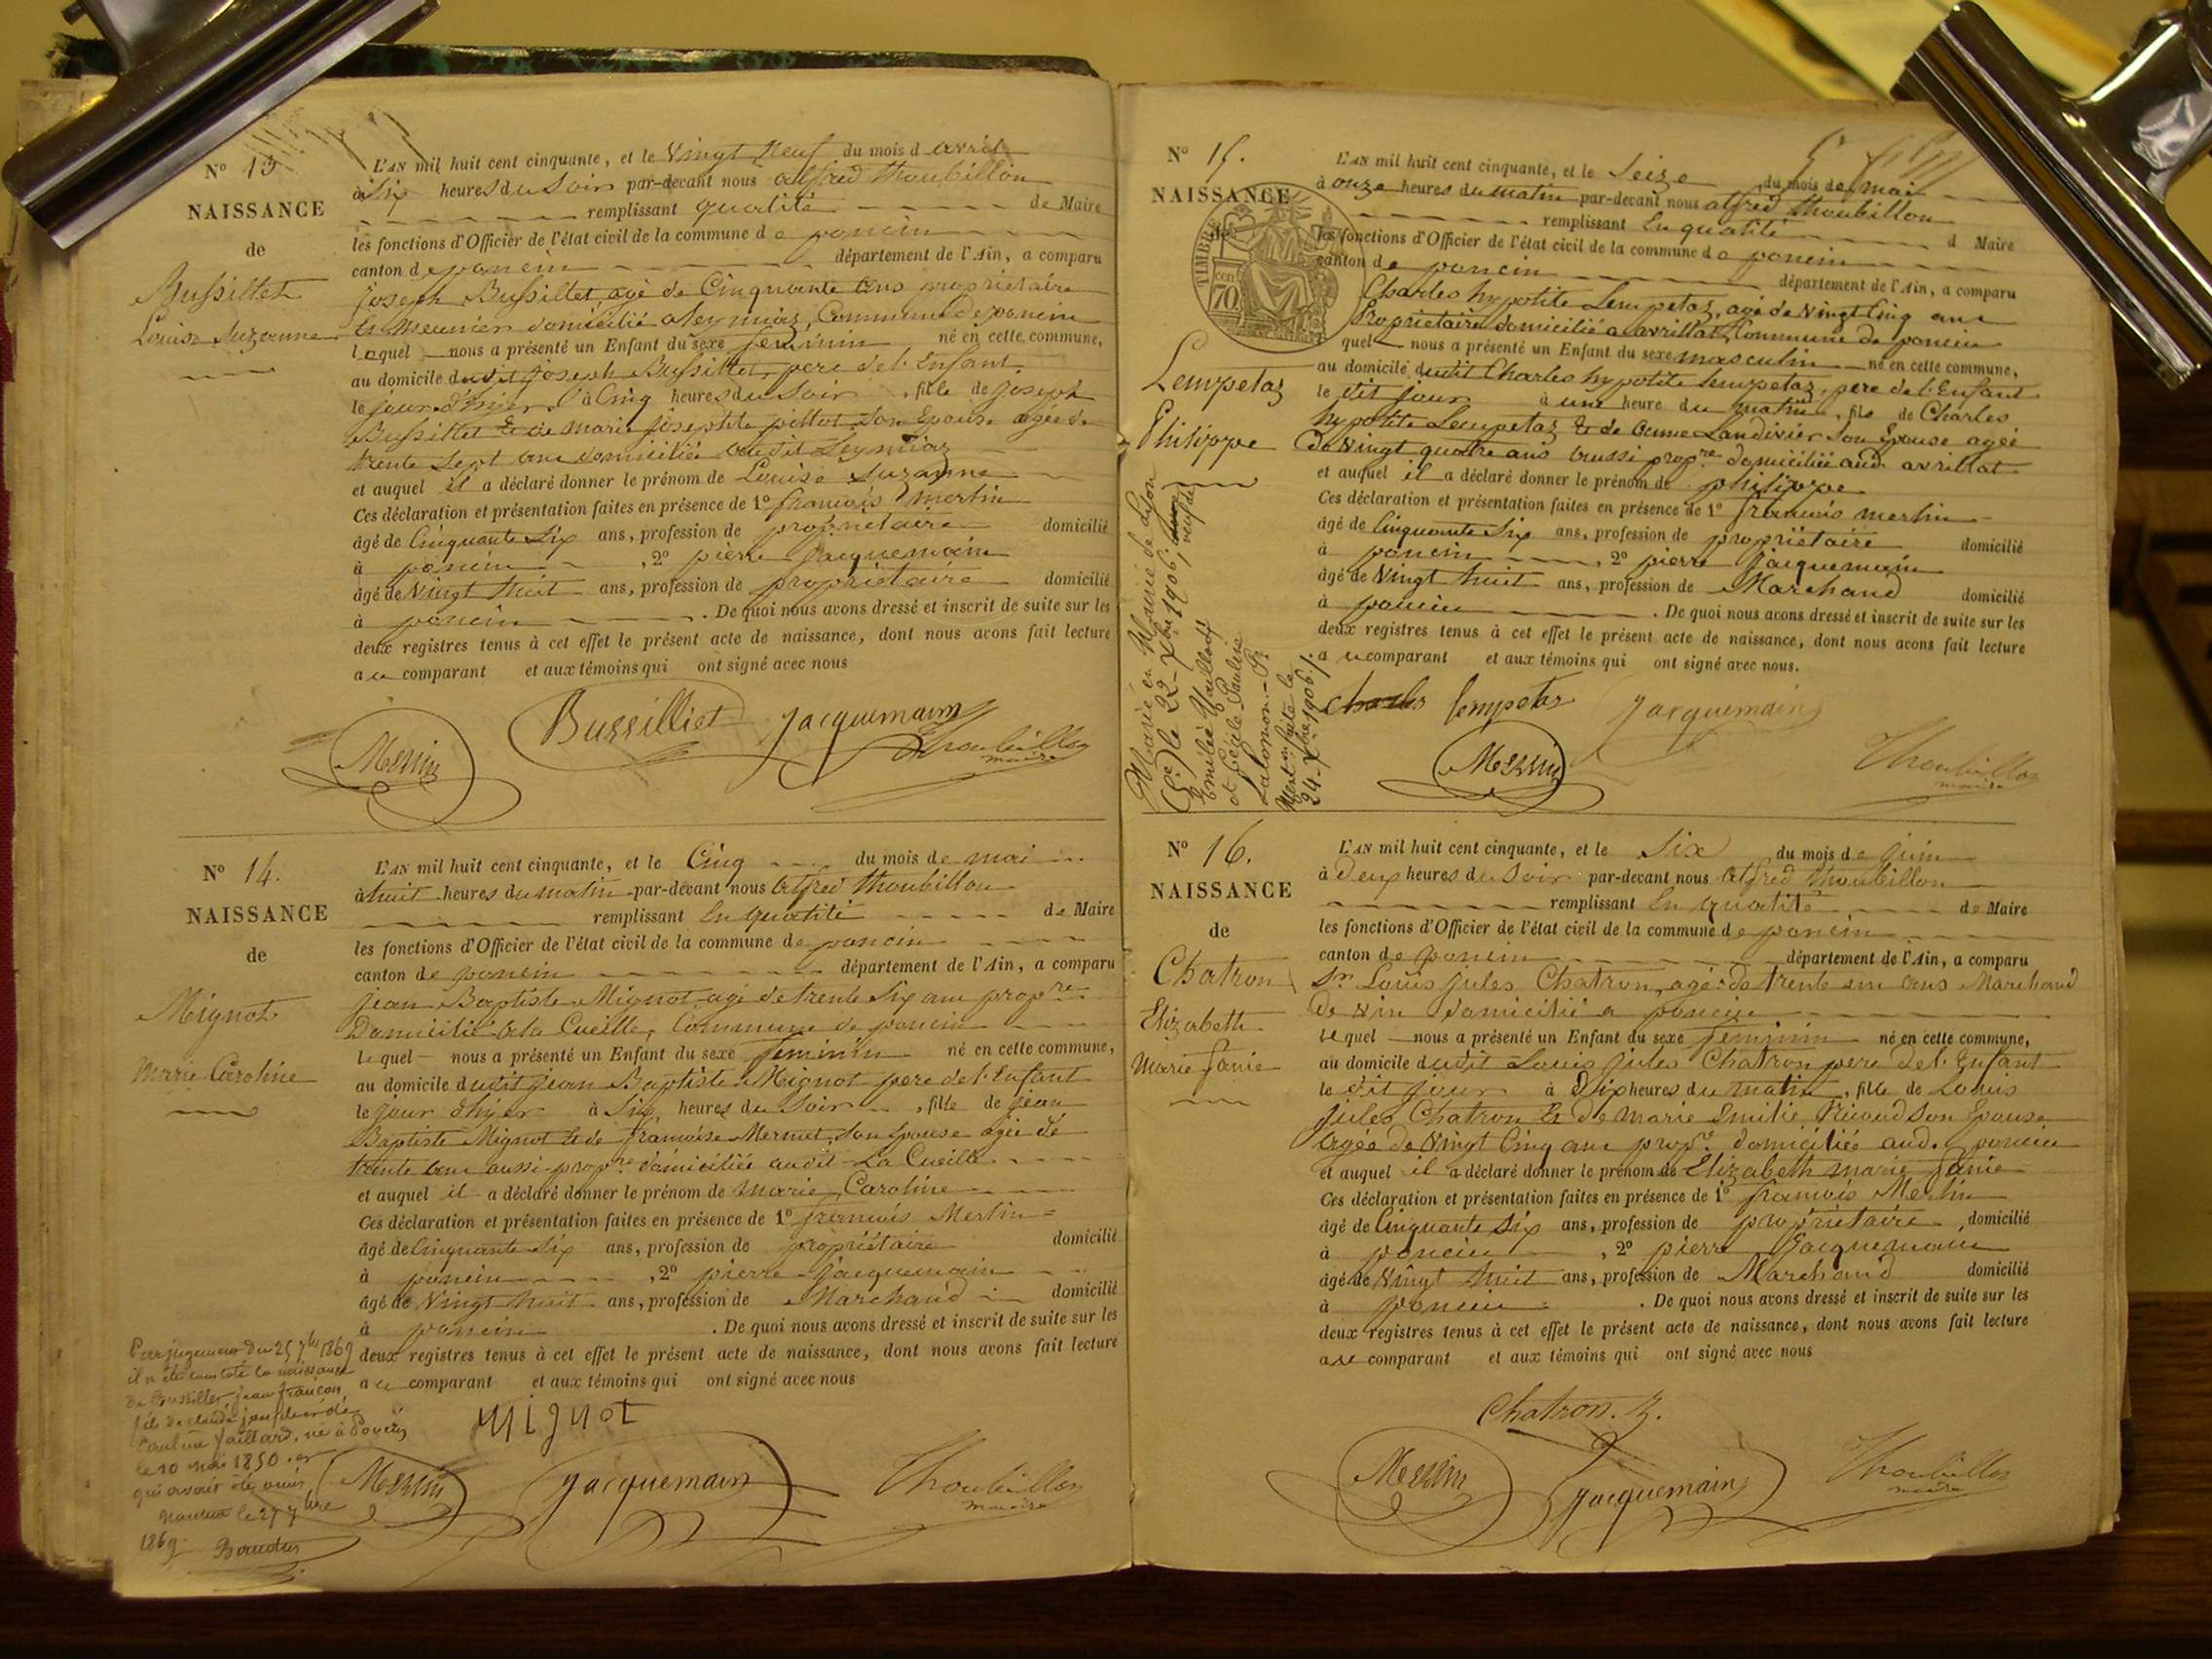 N° 13
NAISSANCE
de
Bussillet
Louise Suzanne
L'AN mil huit cent cinquante, et le Vingt Neuf du mois d avril
à Six heures du Soir par-devant nous alfred thoubillon
remplissant qualité de Maire
les fonctions d'Officier de l'état civil de la commune d e poncin
canton d e poncin département de l'Ain, a comparu
joseph Bussillet, agé de Cinquante ans propriétaire
et Meunier domicilié a leymiaz, Commune de poncin
Lequel nous a présenté un Enfant du sexe feminin né en cette commune,
au domicile dudit joseph Bussillet, pere de l'Enfant.
le jour d'hyer à Cinq heures du Soir, fille de joseph
Bussillet et de marie josephte pillot son Epouse agée de
trente Sept ans domiciliée audit Leymiaz
et auquel il a déclaré donner le prénom de Louise Suzanne
Ces déclaration et présentation faites en présence de 1° francois merlin
âgé de Cinquante Six ans, profession de propriétaire domicilié
à poncin, 2° pierre jacquemain
âgé de Vingt huit ans, profession de propriétaire domicilié
à poncin. De quoi nous avons dressé et inscrit de suite sur les
deux registres tenus à cet effet le présent acte de naissance, dont nous avons fait lecture
a u comparant et aux témoins qui ont signé avec nous
Bussilliet jacquemain
Merlin Thoubillon
maire
N° 14.
NAISSANCE
de
Mignot
Marie Caroline
L'AN mil huit cent cinquante, et le Cinq du mois de mai
à huit heures du matin par-devant nous alfred thoubillon
remplissant En qualité de Maire
les fonctions d'Officier de l'état civil de la commune de poncin
canton de poncin département de l'Ain, a comparu
jean Baptiste Mignot agé de trente Six ans propre
Domicilié a la Cueille, Commune de poncin
lequel nous a présenté un Enfant du sexe feminin né en cette commune,
au domicile dudit jean Baptiste Mignot pere de l'Enfant
le jour d'hyer à Six heures du Soir, fille de jean
Baptiste Mignot et de francoise Mermet, son Epouse agée de
trente ans aussi propre domiciliée audit La Cueille
et auquel il a déclaré donner le prénom de Marie Caroline
Ces déclaration et présentation faites en présence de 1° francois Merlin
âgé de Cinquante Six ans, profession de propriétaire domicilié
à poncin, 2° pierre jacquemain
âgé de Vingt huit ans, profession de Marchand domicilié
à poncin. De quoi nous avons dressé et inscrit de suite sur les
deux registres tenus à cet effet le présent acte de naissance, dont nous avons fait lecture
a u comparant et aux témoins qui ont signé avec nous
Par jugement du 25 7bre 1869
il a été constaté la naissance
de Bussiller, jean françois,
fils de claude et de
Pauline Jaillard, né à Poncin
le 10 mai 1850. et
qui avait été omis
Nantua le 27 7bre
1869. Baudin
Mignot
Merlin jacquemain Thoubillon
maire
N° 15.
NAISSANCE
de
TIMBRE
70
Lempetaz
Philippe
L'AN mil huit cent cinquante, et le Seize du mois de mai
à onze heures du matin par-devant nous alfred thoubillon
remplissant En qualité d Maire
les fonctions d'Officier de l'état civil de la commune d e poncin
canton d e poncin département de l'Ain, a comparu
Charles hypolite Lempetaz, agé de Vingt Cinq ans
Propriétaire domicilié a avrillat, Commune de poncin
quel nous a présenté un Enfant du sexe masculin né en cette commune,
au domicile dudit Charles hypolite Lempetaz, pere de l'Enfant
le dit jour à une heure du matin, fils de Charles
hypolite Lempetaz et de anne Landivier Son Epouse agée
de Vingt quatre ans aussi propre domiciliée aud. avrillat
et auquel il a déclaré donner le prénom de philippe
Ces déclaration et présentation faites en présence de 1° francois merlin
âgé de Cinquante Six ans, profession de propriétaire domicilié
à poncin, 2° pierre jacquemain
âgé de Vingt huit ans, profession de Marchand domicilié
à poncin. De quoi nous avons dressé et inscrit de suite sur les
deux registres tenus à cet effet le présent acte de naissance, dont nous avons fait lecture
a u comparant et aux témoins qui ont signé avec nous.
Marié en Mairie de Lyon
le 22 Xbre 1906; veuf de
Emélie
et Cécile Pauline
Salomon
Ment. faite le
24 Xbre 1906
Charles lempetaz jacquemain
Merlin Thoubillon
maire
N° 16.
NAISSANCE
de
Chatron
Elizabeth
Marie Janie
L'AN mil huit cent cinquante, et le Six du mois de juin
à Deux heures du Soir par-devant nous alfred thoubillon
remplissant En qualité de Maire
les fonctions d'Officier de l'état civil de la commune d e poncin
canton de poncin département de l'Ain, a comparu
Sr Louis jules Chatron, agé de trente un ans Marchand
de Vin domicilié a poncin
Lequel nous a présenté un Enfant du sexe feminin né en cette commune,
au domicile dudit Louis jules Chatron pere de l'Enfant
le dit jour à Dix heures du matin, fille de Louis
jules Chatron et de marie Emilie Son Epouse
agée de Vingt Cinq ans propre domiciliée aud. poncin
et auquel il a déclaré donner le prénom de Elizabeth marie Janie
Ces déclaration et présentation faites en présence de 1° francois Merlin
âgé de Cinquante Six ans, profession de propriétaire, domicilié
à poncin, 2° pierre jacquemain
âgé de Vingt huit ans, profession de Marchand domicilié
à poncin. De quoi nous avons dressé et inscrit de suite sur les
deux registres tenus à cet effet le présent acte de naissance, dont nous avons fait lecture
a u comparant et aux témoins qui ont signé avec nous
Chatron. j.
Merlin jacquemain Thoubillon
maire